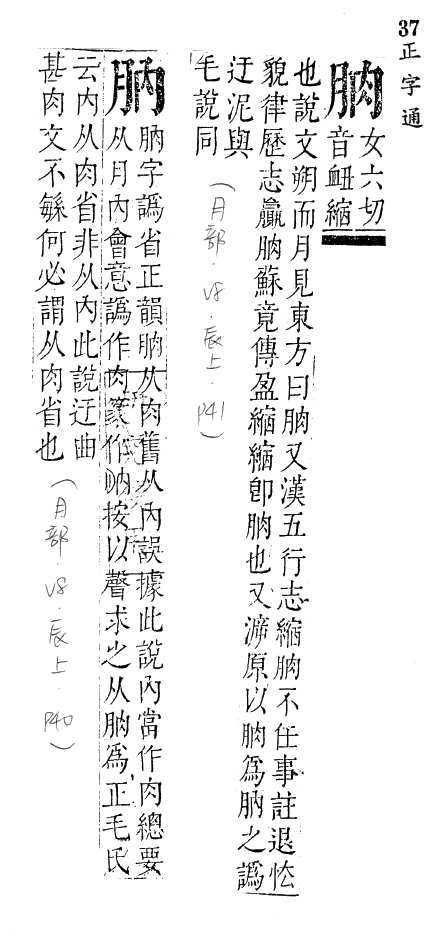 37
正字通
朒 女六切
音衄縮
也說文朔而月見東方曰朒又漢五行志縮朒不任事註退㤼
貌律歷志贏朒蘇竟傳盈縮縮卽朒也又泝原以朒爲肭之譌
迂泥與
毛說同
(月部.V8.辰上.P41)
肭 肭字譌省正韻朒从肉舊从內誤據此說內當作肉總要
从月內會意譌作肉篆作 按以聲求之从朒爲正毛氏
云內从肉省非从內此說迂曲
甚肉文不緐何必謂从肉省也
(月部.V8.辰上.P40)